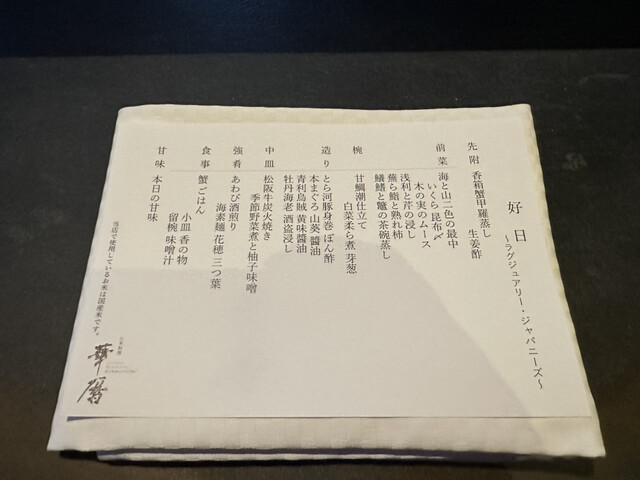 好日
~ラグジュアリー・ジャパニーズ~
先附 香箱蟹甲羅蒸し
生姜酢
前菜 海と山二色の最中
いくら 昆布〆
木の実のムース
浅利と芹の浸し
蕪ら鮨と熟れ柿
鱶鰭と鼈の茶碗蒸し
椀 甘鯛潮仕立て
白菜柔ら煮 芽葱
造り とら河豚身巻 ぽん酢
本まぐろ 山葵 醬油
青利烏賊 黄味醬油
牡丹海老 酒盗浸し
中皿 松阪牛炭火焼き
季節野菜煮と柚子味噌
強肴 あわび酒煎り
海素麺 花穂 三つ葉
食事 蟹ごはん
小皿 香の物
留椀 味噌汁
甘味 本日の甘味
当店で使用しているお米は国産米です。
日本料理
華暦